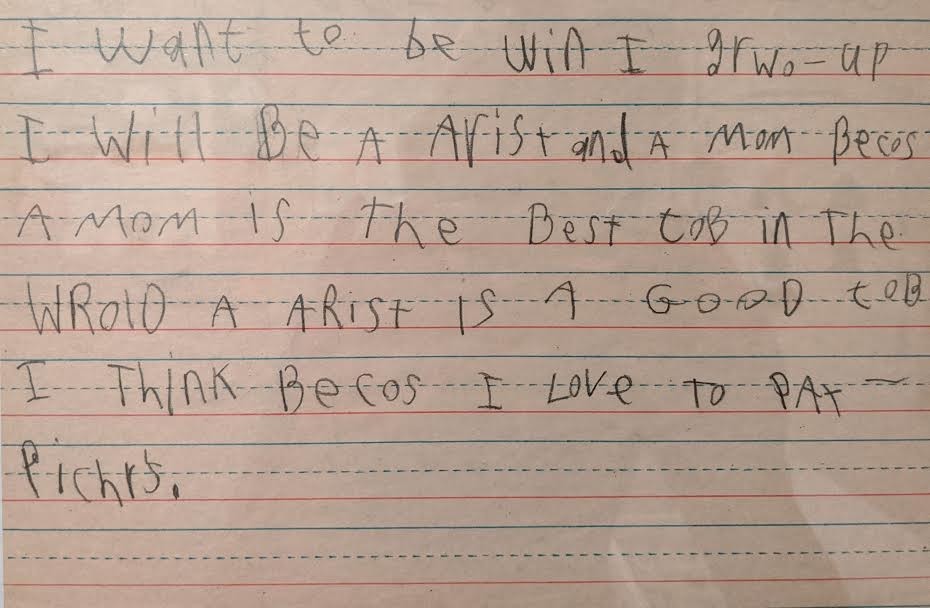 I want to be win I grwo-up
I Will Be A Arist and A Mom Becos
A Mom is the Best toB in The
WRolD A ARist is A GooD toB
I ThiNK Becos I Love To PAt
Pichrs.